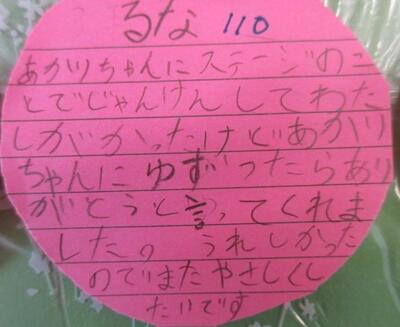 るな 110
あかりちゃんにステージのこ
とでじゃんけんしてわた
しがかったけどあかり
ちゃんにゆずったらあり
がとうと言ってくれま
した。うれしかった
のでまたやさしくし
たいです